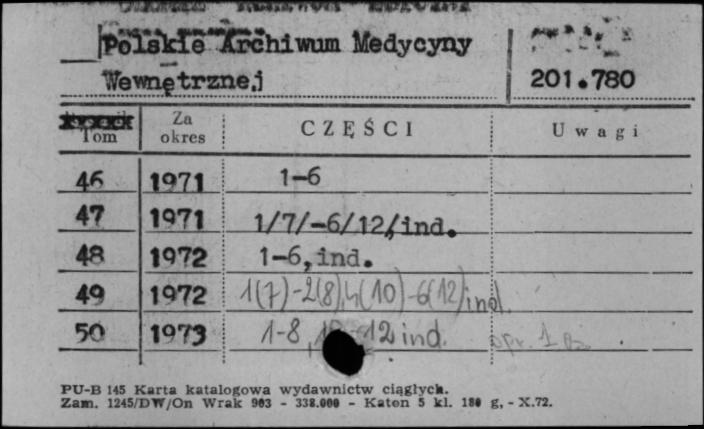 Polskie Archiwum Medycyny
Wewnętrznej
201.780
Tom
Za okres
CZĘŚCI
Uwagi
46 1971 1-6
47 1971 1/7/-6/12/,ind.
48 1972 1-6, ind.
49 1972 1(7)-2(8),4(10)-6(12)ind.
50 1973 1-8, 12 ind. opr. 1
PU-B 145 Karta katalogowa wydawnictw ciągłych.
Zam. 1245/DW/On Wrak 903 - 338.000 - Katon 5 kl. 180 g, - X.72.